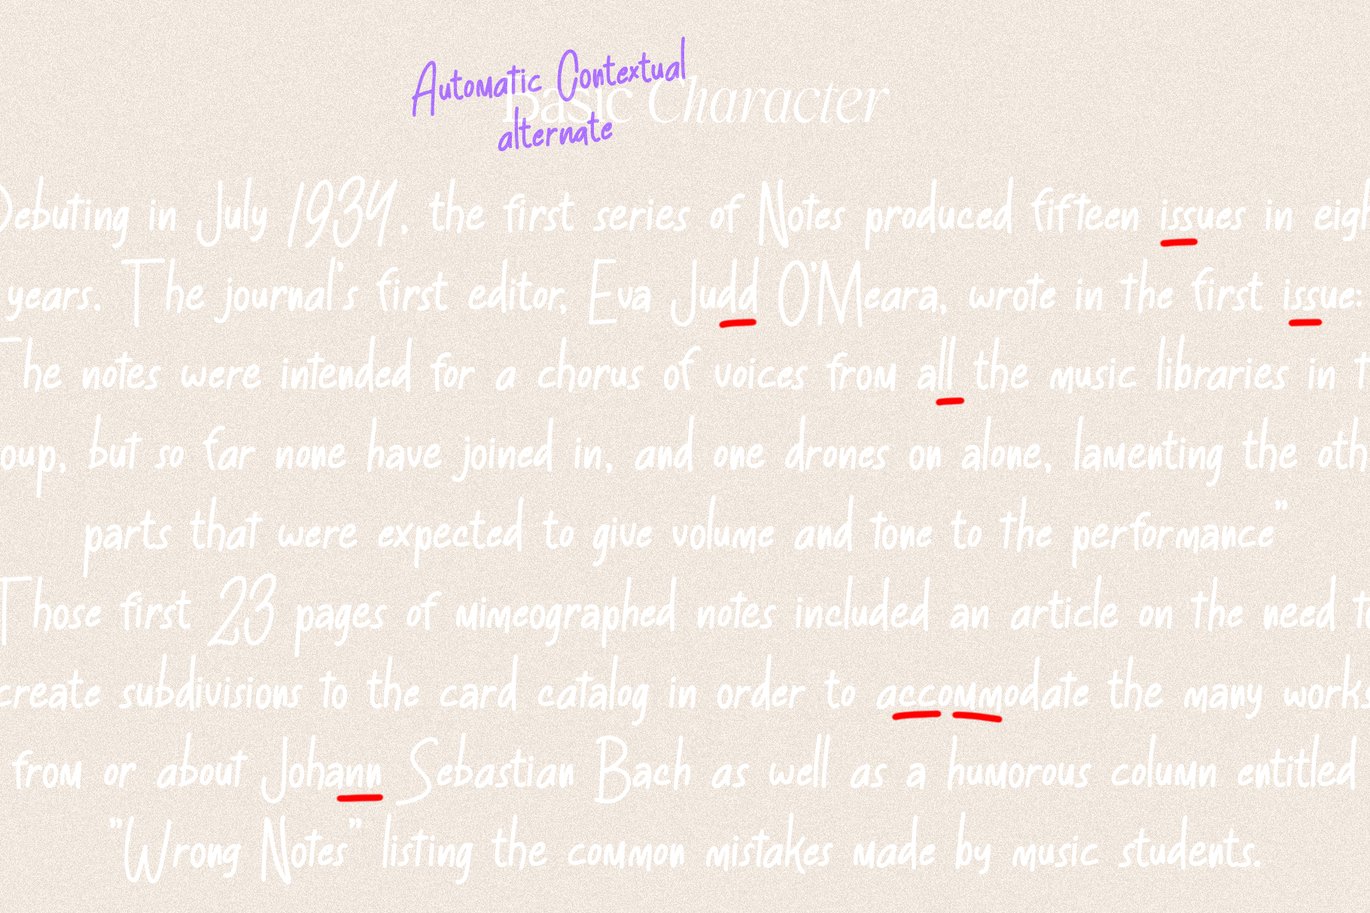 Automatic Contextual
alternate
Basic Character
Debuting in July 1934, the first series of Notes produced fifteen issues in eigh
years. The journal's first editor, Eva Judd O'Meara, wrote in the first issue:
The notes were intended for a chorus of voices from all the music libraries in
oup, but so far none have joined in, and one drones on alone, lamenting the oth
parts that were expected to give volume and tone to the performance"
Those first 23 pages of mimeographed notes included an article on the need t
create subdivisions to the card catalog in order to accommodate the many works
from or about Johann Sebastian Bach as well as a humorous column entitled
"Wrong Notes" listing the common mistakes made by music students.